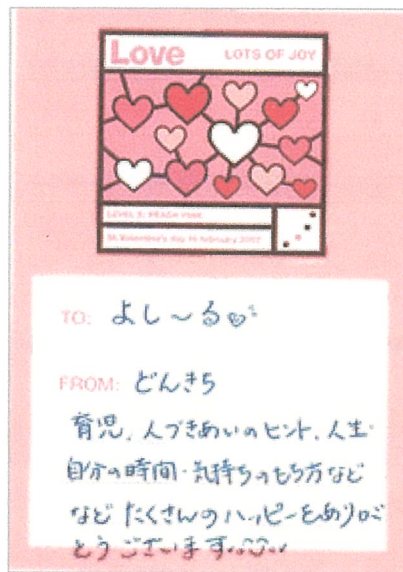 Love
LOTS OF JOY
LEVEL 3: PEACH PINK
St. Valentine's day 14 february 2017
TO: よし〜る
FROM: どんきち
育児、人づきあいのヒント、人生・
自分の時間・気持ちのもち方など
など たくさんのハッピーをありが
とうございます